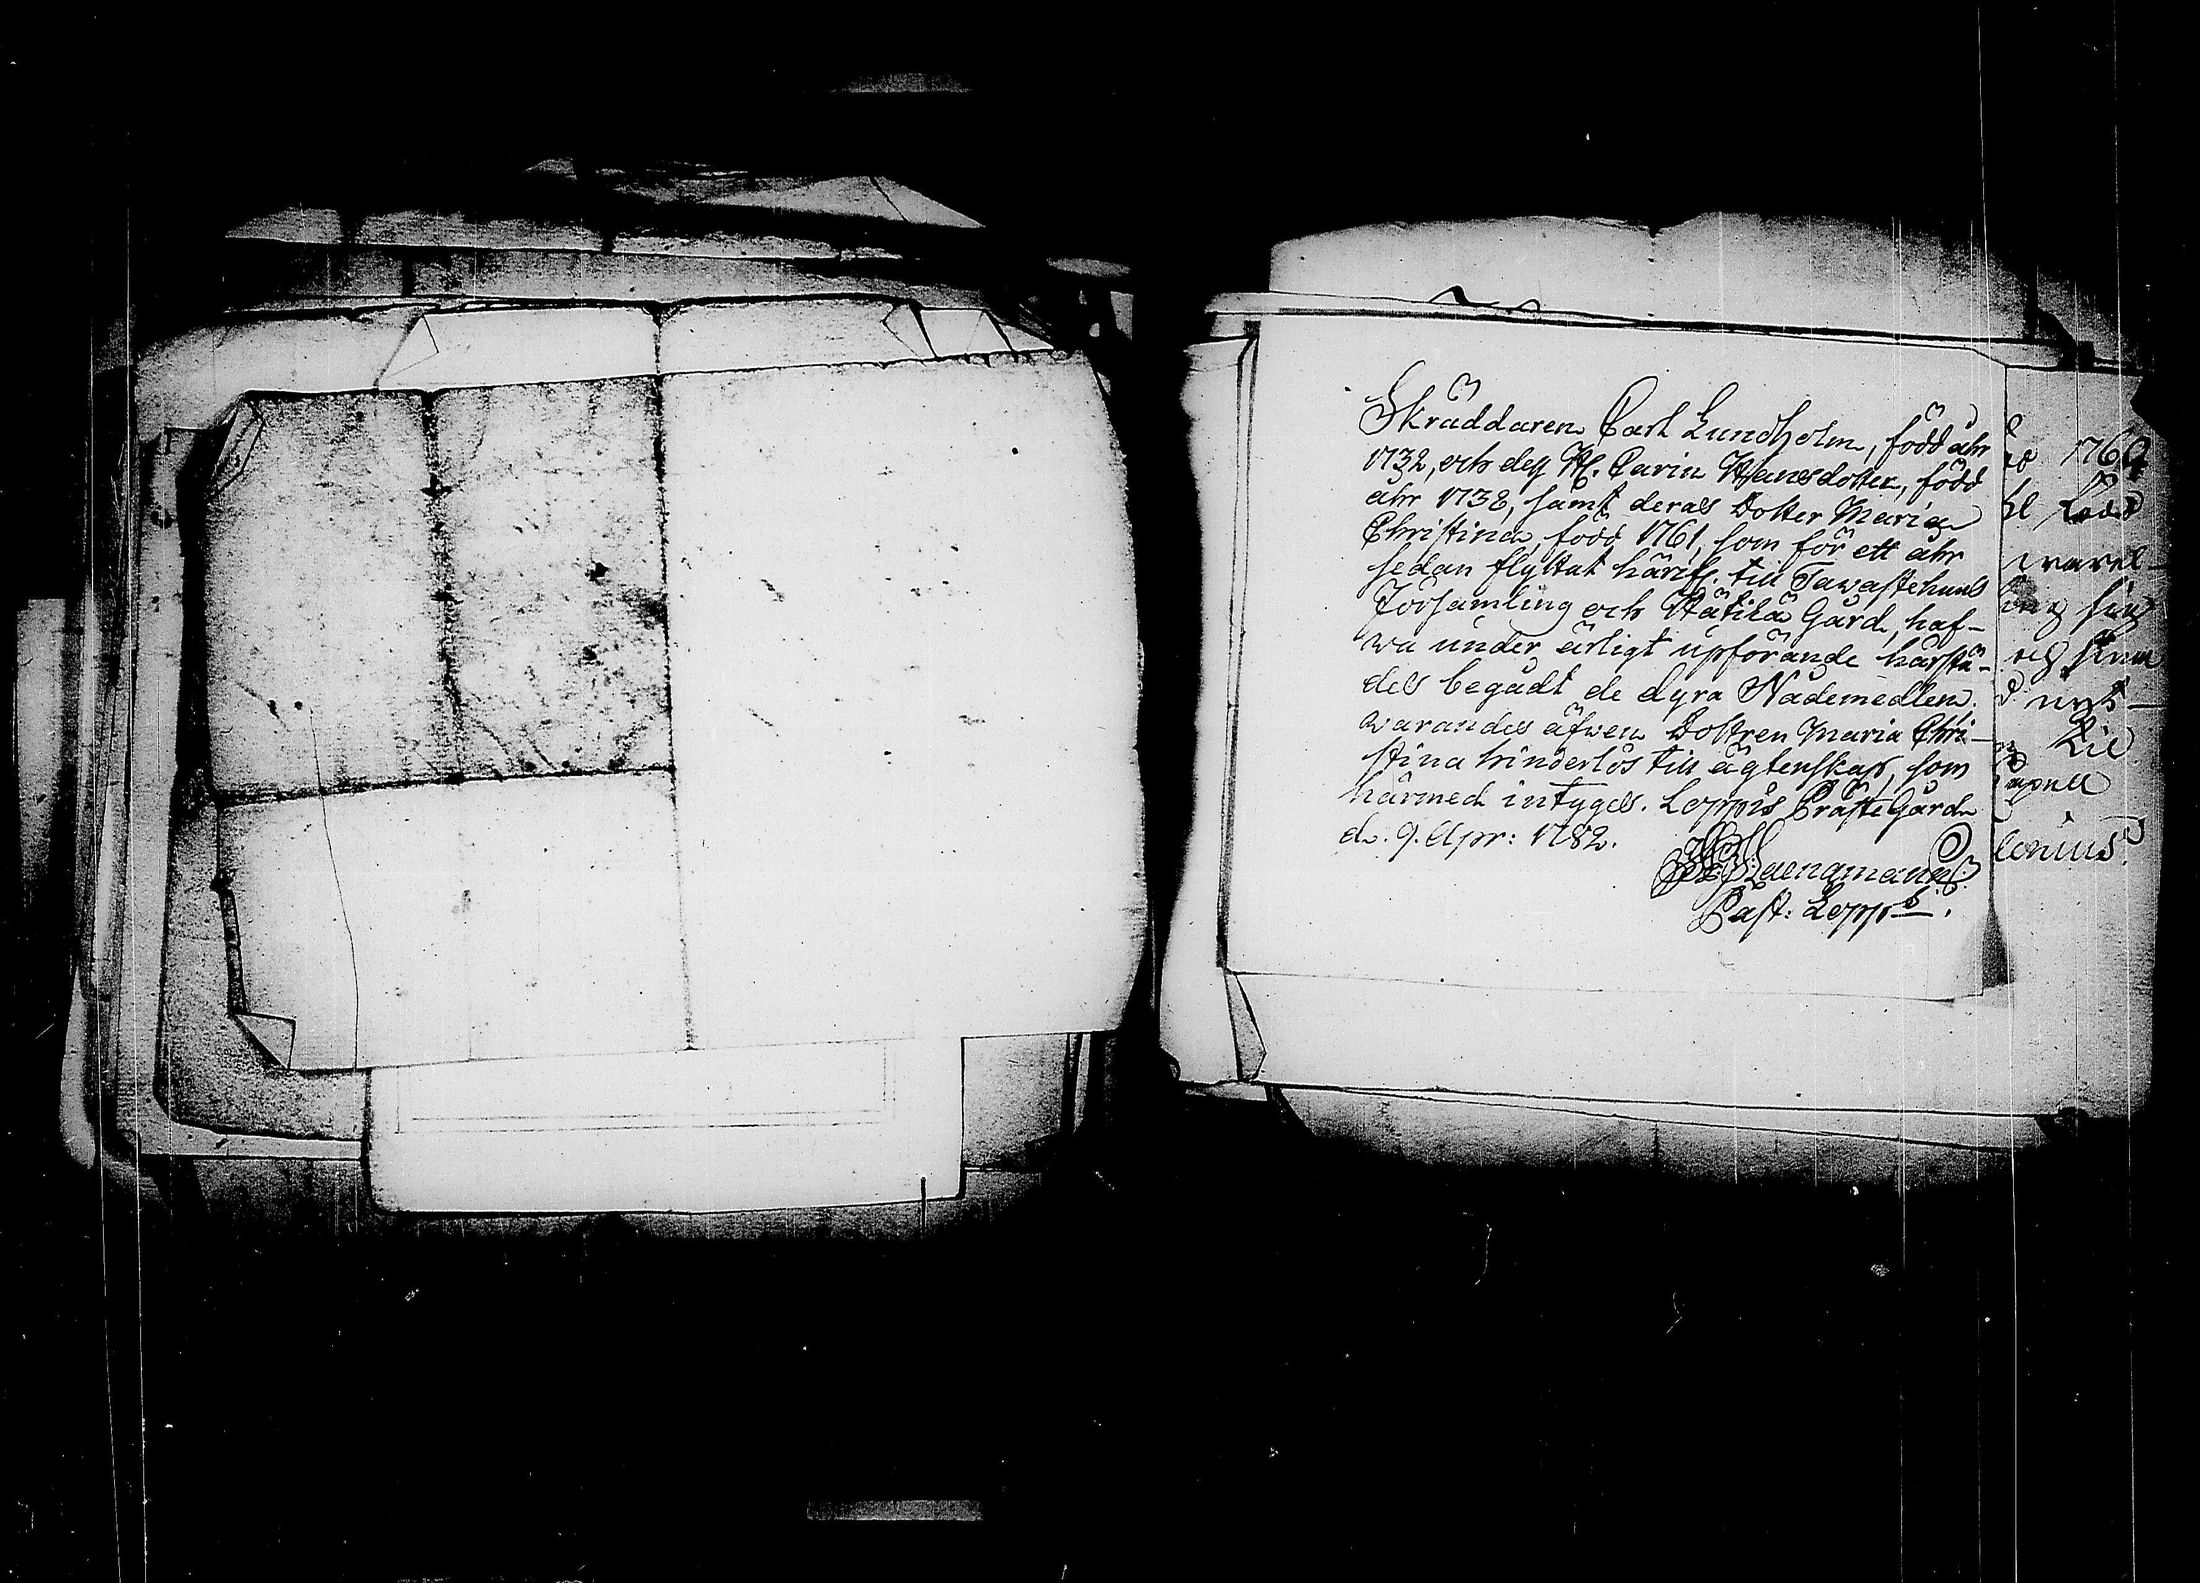 Skräddaren Carl Lundholm, född åhr
1732, och deß H. Carin Hansdotter, född
åhr 1738, samt deras Dotter Maria
Christina, född 1761, som för ett åhr
sedan flyttat härifr. till Tawastehuus
Församling och Hätilä Gård, haf-
wa under ärligt upförande härstä-
des begådt de dyra Nådemedlen.
warandes äfwen Dottren Maria Chri-
stina hinderlös till ägtenskap, som
härmed intyges. Loppis PrästeGård
d. 9. Apr: 1782.
Past: Lopp
1769
född
sig
sina
nyt-